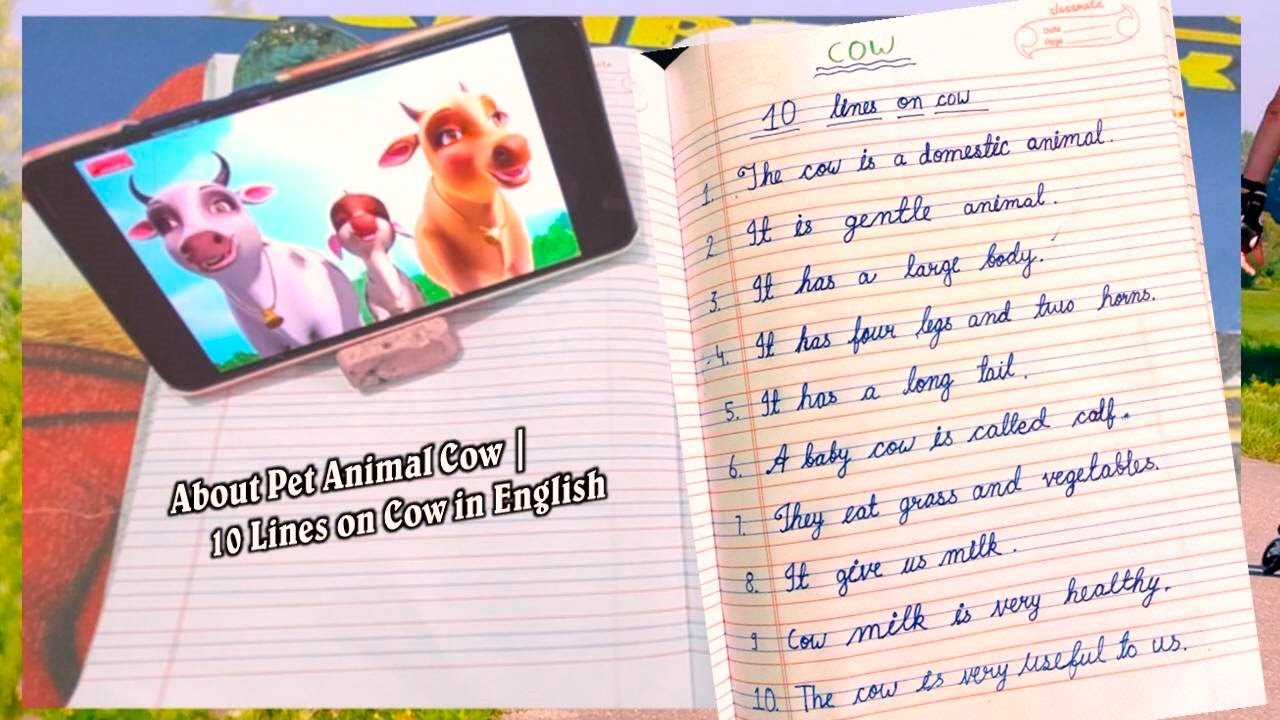 About Pet Animal Cow |
10 Lines on Cow in English
classmate
Date
Page
COW
10 lines on cow
1. The cow is a domestic animal.
2 It is gentle animal.
3. It has a large body.
4. It has four legs and two horns.
5. It has a long tail.
6. A baby cow is called calf.
7. They eat grass and vegetables.
8. It give us milk.
9 Cow milk is very healthy.
10. The cow is very useful to us.